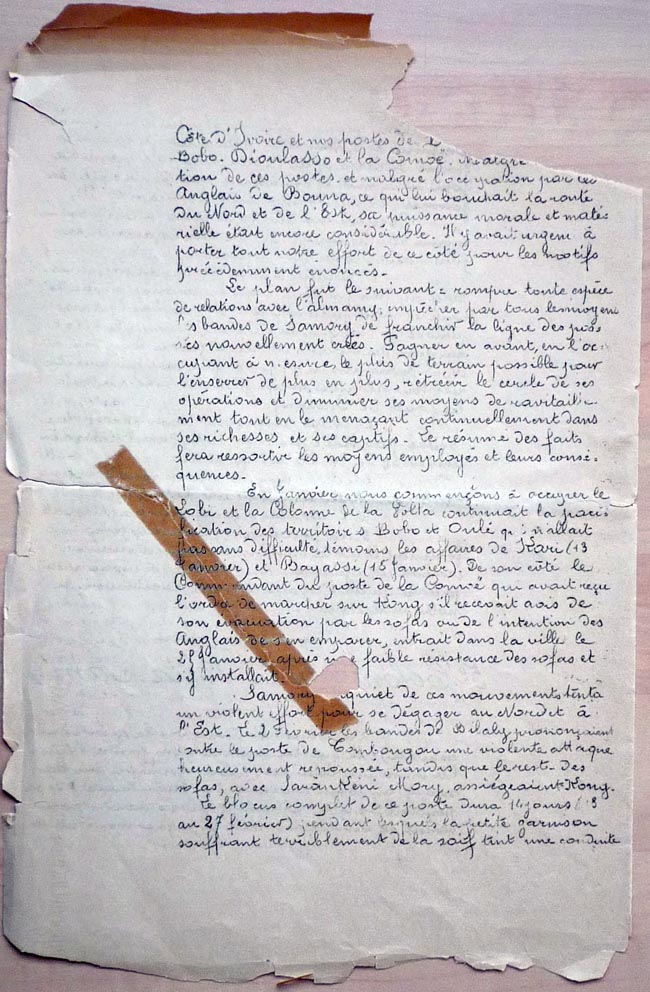 Côte d'Ivoire et nos postes de
Bobo-Dioulasso et la Comoë. Malgré
tion de ces postes et malgré l'occupation par les
Anglais de Bouna, ce qui lui bouchait la route
du Nord et de l'Est, sa puissance morale et maté-
rielle était encore considérable. Il y avait urgence à
porter tout notre effort de ce côté pour les motifs
précédemment énoncés.
Le plan fut le suivant = rompre toute espèce
de relations avec l'almamy; empêcher par tous les moyens
les bandes de Samory de franchir la ligne des pos-
tes nouvellement créés. Gagner en avant, en l'oc-
cupant à mesure, le plus de terrain possible pour
l'enserrer de plus en plus, rétrécir le cercle de ses
opérations et diminuer ses moyens de ravitaille-
ment tout en le menaçant continuellement dans
ses richesses et ses captifs. Le résumé des faits
fera ressortir les moyens employés et leurs consé-
quences.
En Janvier nous commençons à occuper le
Lobi et la Colonne de la Volta continuait la paci-
fication des territoires Bobo et Oulé qui n'allait
pas sans difficulté, témoins les affaires de Kari (13
Janvier) et Bayassi (15 Janvier). De son côté le
Commandant du poste de la Comoé qui avait reçu
l'ordre de marcher sur Kong s'il recevait avis de
son évacuation par les sofas ou de l'intention des
Anglais de s'en emparer, entrait dans la ville le
25 Janvier après une faible résistance des sofas et
s'y installait.
Samory inquiet de ces mouvements tenta
un violent effort pour se dégager au Nord et à
l'Est. Le 2 Février les bandes de Bilaly prononçaient
contre le poste de Tombougou une violente attaque
heureusement repoussée, tandis que le reste des
sofas, avec Sarankéni Mory, assiégeaient Kong.
Le blocus complet de ce poste dura 14 jours (13
au 27 février) pendant lesquels la petite garnison
souffrant terriblement de la soif tint une conduite